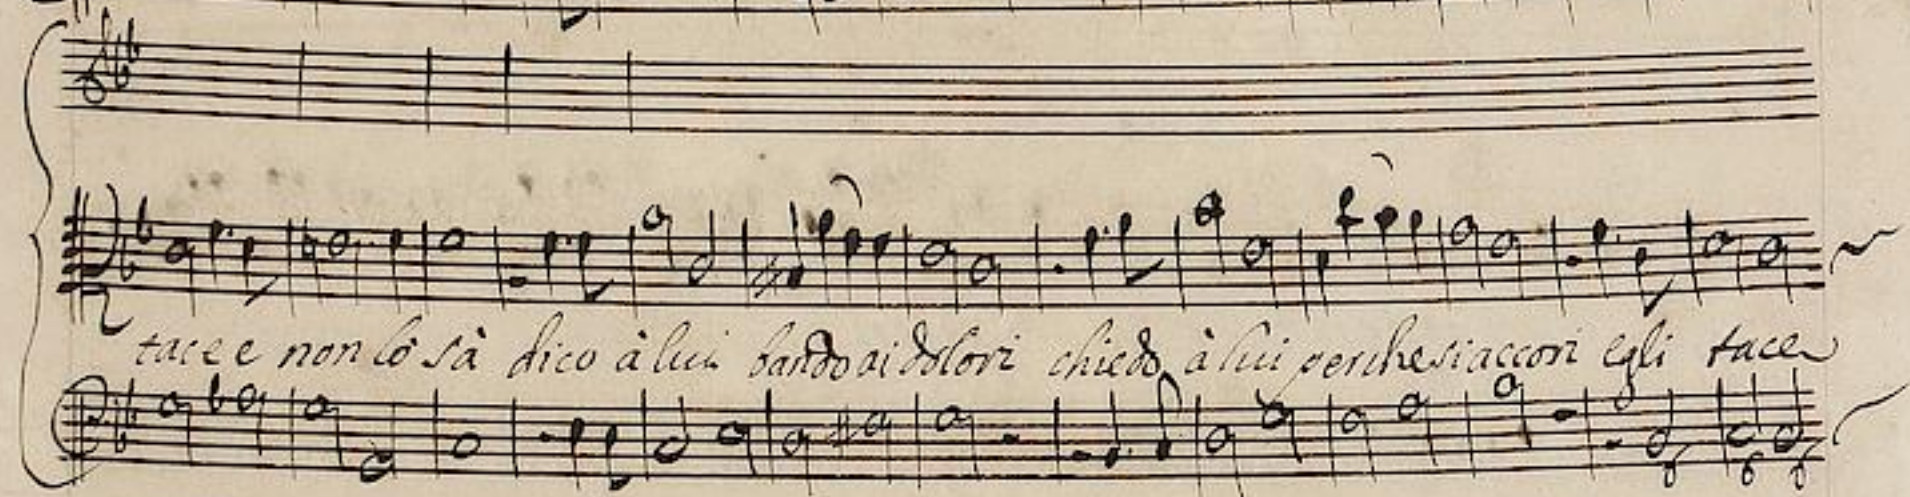 tace e non lo sà dico à lui bando ai dolori chiedo à lui perche si accori egli tace